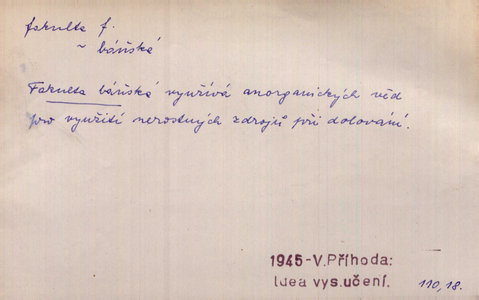 fakulta f.
~ báňská
Fakulta báňská využívá anorganických věd
pro využití nerostných zdrojů při dolování.
1945-V.Příhoda:
Idea vys.učení.
110,18.